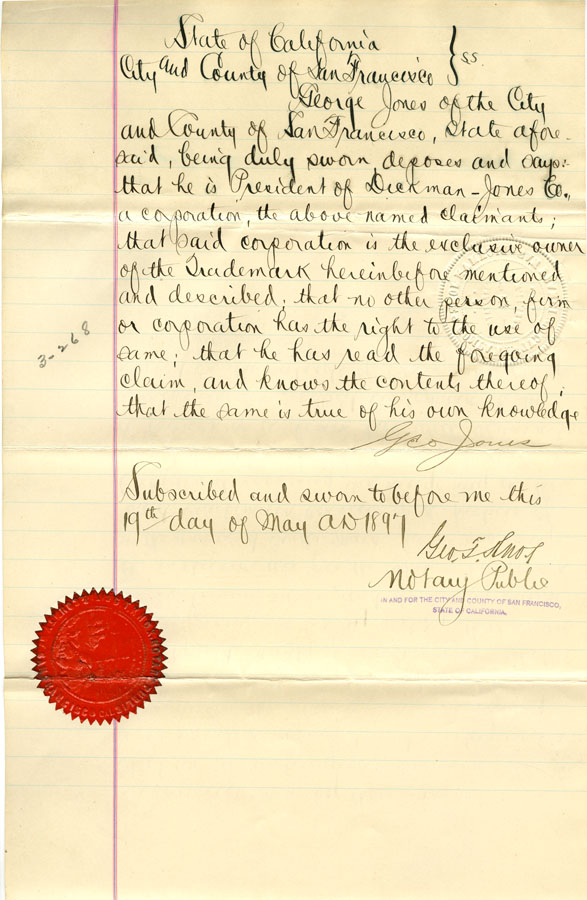 State of California
City and County of San Francisco } ss.
George Jones of the City
and County of San Francisco, State afore-
said, being duly sworn deposes and says:
that he is President of Dickman-Jones Co.,
a corporation, the above named claimants;
that said corporation is the exclusive owner
of the Trademark hereinbefore mentioned
and described; that no other person, firm
or corporation has the right to the use of
same; that he has read the foregoing
claim, and knows the contents thereof;
that the same is true of his own knowledge
Geo Jones
3-268
Subscribed and sworn to before me this
19th day of May A.D 1897
Geo. T. Knox
Notary Public
IN AND FOR THE CITY AND COUNTY OF SAN FRANCISCO,
STATE OF CALIFORNIA.